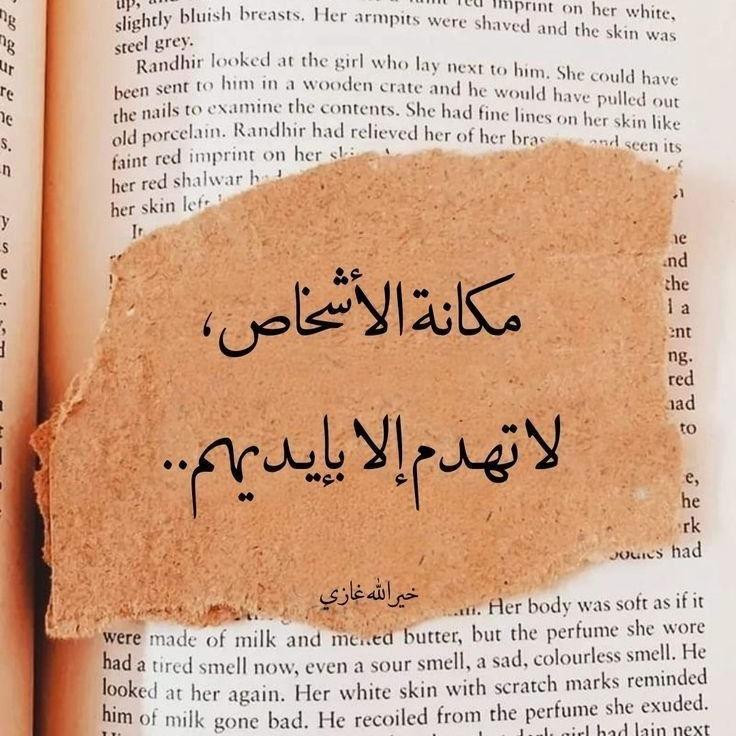 imprint on her white,
slightly bluish breasts. Her armpits were shaved and the skin was
steel grey.
Randhir looked at the girl who lay next to him. She could have
been sent to him in a wooden crate and he would have pulled out
the nails to examine the contents. She had fine lines on her skin like
old porcelain. Randhir had relieved her of her and seen its
faint red imprint on her
her red shalwar
her skin left
It
the
مكانة الأشخاص،
لا تهدم إلا بإيديهم..
خير الله غازي
ng.
red
had
to
he
had
Her body was soft as if it
were made of milk and melted butter, but the perfume she wore
had a tired smell now, even a sour smell, a sad, colourless smell. He
looked at her again. Her white skin with scratch marks reminded
him of milk gone bad. He recoiled from the perfume she exuded.
girl had lain next